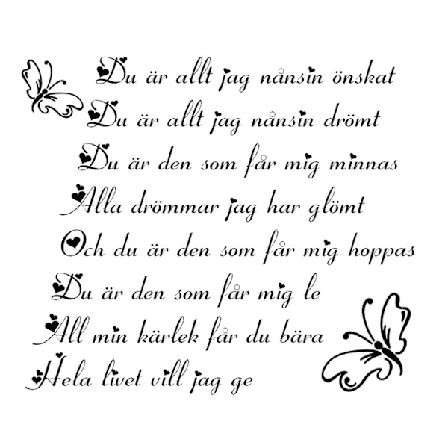 Du är allt jag nånsin önskat
Du är allt jag nånsin drömt
Du är den som får mig minnas
Alla drömmar jag har glömt
Och du är den som får mig hoppas
Du är den som får mig le
All min kärlek får du bära
Hela livet vill jag ge